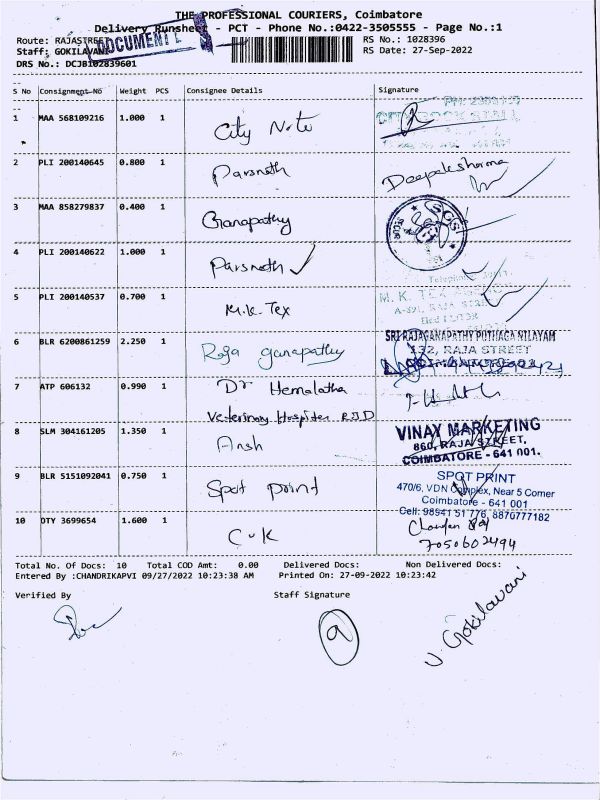 THE PROFESSIONAL COURIERS, Coimbatore
Delivery Runsheet - PCT - Phone No.:0422-3505555 - Page No.:1
DOCUMENT
Route: RAJASTREET RS No.: 1028396
Staff: GOKILAVANI RS Date: 27-Sep-2022
DRS No.: DCJB102839601
S No Consignment No Weight PCS Consignee Details Signature
1 MAA 568109216 1.000 1 City Note
2 PLI 200140645 0.800 1 Parsnath
3 MAA 858279837 0.400 1 Ganapathy
4 PLI 200140622 1.000 1 Parsnath
5 PLI 200140537 0.700 1 M.K. Tex M. K. TEX
6 BLR 6200861259 2.250 1 Raja ganapathy SRI RAJAGANAPATHY PUTHAGA NILAYAM
132, RAJA STREET
7 ATP 606132 0.990 1 Dr Hemalatha
Veterinary
8 SLM 304161205 1.350 1 Ansh VINAY MARKETING
860, RAJA STREET,
COIMBATORE - 641 001.
9 BLR 5151092041 0.750 1 Spot print SPOT PRINT
470/6, VDN Complex, Near 5 Corner
Coimbatore - 641 001
Cell: 98941 51 776, 8870777182
10 DTY 3699654 1.600 1 CUK
7050602494
Total No. Of Docs: 10 Total COD Amt: 0.00 Delivered Docs: Non Delivered Docs:
Entered By :CHANDRIKAPVI 09/27/2022 10:23:38 AM Printed On: 27-09-2022 10:23:42
Verified By Staff Signature
9
U. Gokilavani